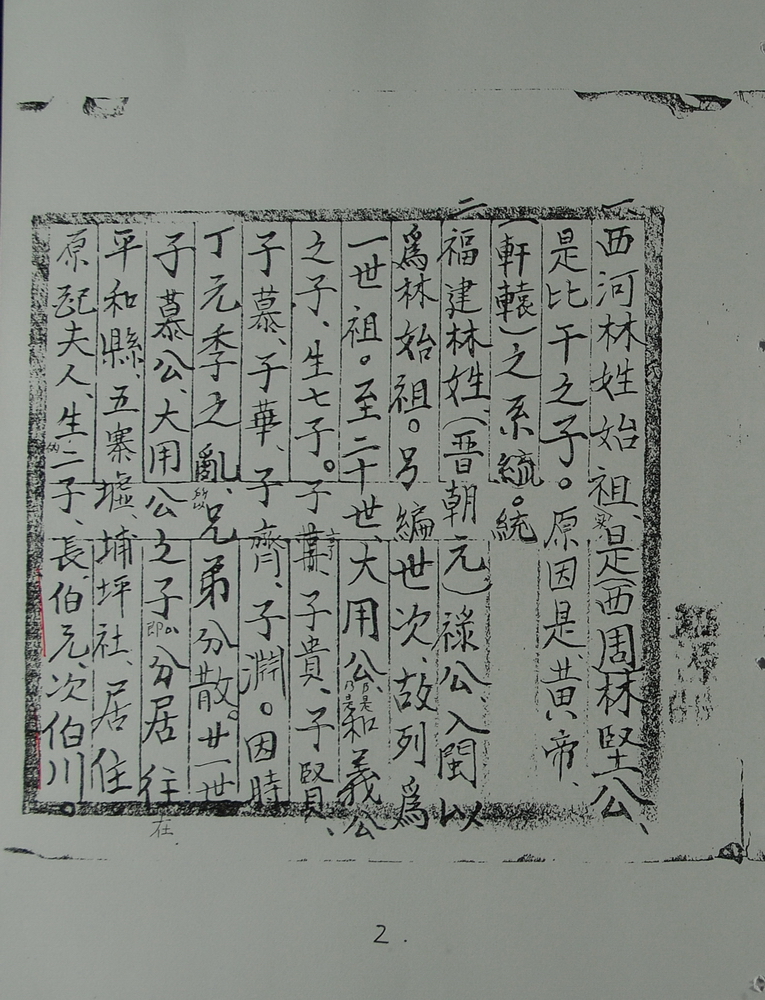 一西河林姓始祖、是(西周)林堅公、
是比干之子。原因是黃帝、
(軒轅)之系統。統
二福建林姓(晋朝元)祿公、入閩以
爲林始祖。另編世次、故列爲
一世祖。至二十世、大用公、乃是和義公
之子、生七子。子蕚、子貴、子賢、
子慕、子華、子齊、子淵。因時
丁元季之亂、所以兄弟分散。廿一世
子慕公、大用公之子即分居往在
平和縣、五寨墟、埔坪社、居住。
原配夫人、生二子、長伯元、次伯川。
2.